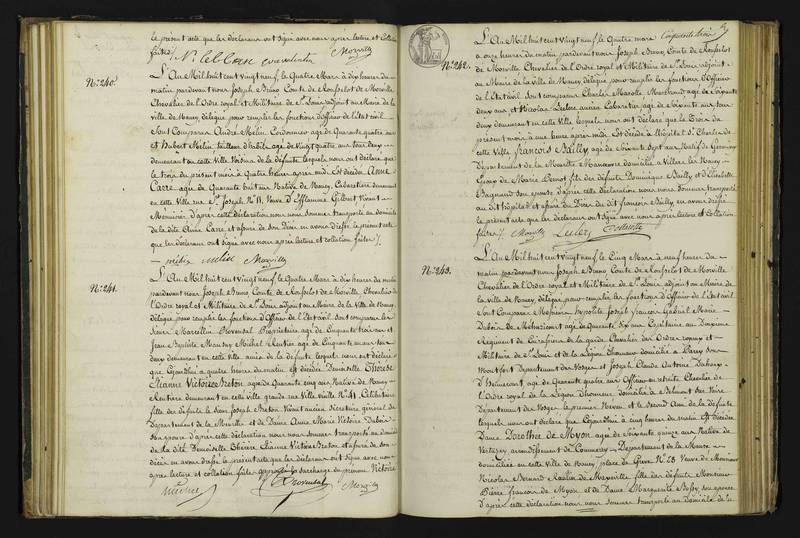 le présent acte que les déclarans ont signé avec nous après lecture et collation
faites./.
N° 240.
L'An Mil huit cent vingt neuf le Quatre Mars à dix heures du
matin pardevant nous Joseph Bruno Comte de Rouffelot de Morville
Chevalier de l'Ordre royal et Militaire de St Louis adjoint au Maire de la
ville de Nancy, délégué pour remplir les fonctions d'officier de l'état civil
Sont Comparus André Melin, Cordonnier âgé de Quarante quatre ans
et Hubert Melin tailleur d'habits, âgé de vingt quatre ans tous deux
demeurant en cette ville Voisins de la défunte lesquels nous ont déclaré que
le trois du présent mois à Quatre heures après midi Est décédée Anne
Carré agée de Quarante huit ans Native de Nancy, Cabaretière demeurant
en cette Ville rue St Joseph N° 11, Veuve d'Efflamme Gilbert vivant
Menuisier d'après cette déclaration nous nous sommes transporté au domicile
de la dite Anne Carré et assuré de son Décès en avons dressé le présent acte
que les déclarans ont signé avec nous après lecture et collation faites./.
melin Morville
N° 241.
L'An Mil huit cent vingt neuf le Quatre Mars à dix heures du matin
pardevant nous Joseph Bruno Comte de Rouffelot de Morville Chevalier de
l'Ordre royal et Militaire de St Louis adjoint au Maire de la Ville de Nancy,
délégué pour remplir les fonctions d'Officier de l'Etat civil Sont comparus les
Sieurs Marcellin Provensal Propriétaire âgé de Cinquante trois ans et
Jean Baptiste Mansuy Michel Rentier agé de Cinquante un ans tous
deux demeurant en cette ville amis de la défunte lesquels nous ont déclaré
que Cejourd'hui à quatre heures du matin est décédée Demoiselle Thérèse
Eléanne Victoire Breton agée de Quarante cinq ans Native de Nancy
Rentière demeurant en cette ville grande rue Ville vieille N° 41, Célibataire
fille des défunts le Sieur Joseph Breton Vivant ancien Secrétaire général du
Département de la Meurthe et de Dame Anne Marie Victoire Dubois
Son épouse d'après cette déclaration nous nous sommes transporté au domicile
de la dite Demoiselle Thérèse Eléanne Victoire Breton et assuré de son
décès en avons dressé le présent acte que les déclarans ont signé avec nous
après lecture et collation faites, approuvé la surcharge du prénom Victoire
michel Provensal Morville
Cinquante trois
N° 242.
L'An Mil huit cent vingt neuf le Quatre mars
à onze heures du matin pardevant nous Joseph Bruno Comte de Rouffelot
de Morville Chevalier de l'Ordre royal et Militaire de St Louis adjoint
au Maire de la Ville de Nancy délégué pour remplir les fonctions d'Officier
de l'Etat civil Sont comparus Charles Marotte Marchand agé de Soixante
deux ans et Nicolas Leclerc ancien Cabaretier agé de Soixante ans tous
deux demeurant en cette Ville lesquels nous ont déclaré que le Trois du
présent mois à une heure après midi Est décédé à l'hôpital St Charles de
cette Ville françois Bailly agé de Soixante Sept ans Natif de
Département de la Meurthe Manœuvre domicilié à Villers lès Nancy
Epoux de Marie Pernot fils des défunts Dominique Bailly et Elisabeth
Bagnard son épouse d'après cette déclaration nous nous sommes transporté
au dit hôpital et assuré du Décès du dit françois Bailly en avons dressé
le présent acte que les déclarans ont signé avec nous après lecture et collation
faites./. Morville Leclerc
N° 243.
L'An Mil huit cent vingt neuf le Cinq Mars à neuf heures du
matin pardevant nous Joseph Bruno Comte de Rouffelot de Morville
Chevalier de l'Ordre royal et Militaire de St Louis adjoint au Maire de
la ville de Nancy, délégué pour remplir les fonctions d'Officier de l'Etat civil
Sont Comparus Messieurs hypolite Joseph françois Gabriel Marie
Dubois de agé de Quarante Six ans Capitaine au Deuxième
Régiment de Cuirassiers de la garde Chevalier des Ordres royaux et
Militaire de St Louis et de la Légion d'honneur domicilié à Parey Sous
Montfort Département des Vosges et Joseph Claude Antoine
agé de Quarante quatre ans Officier en retraite Chevalier de
l'Ordre royal de la Légion d'honneur domicilié à
Département des Vosges le premier Neveu et le second Ami de la défunte
lesquels nous ont déclaré que Cejourd'hui à cinq heures du matin Est décédée
Dame Dorothée de Myon agée de Soixante quinze ans Native de
Vertuzey, arrondissement de Commercy, Département de la Meuse
domiciliée en cette Ville de Nancy, place de Grève N° 28 Veuve de Monsieur
Nicolas Bernard Raulin de Maxeville fille des défunts Monsieur
Pierre françois de Myon et de Dame Marguerite son épouse
d'après cette déclaration nous nous sommes transporté au domicile de la